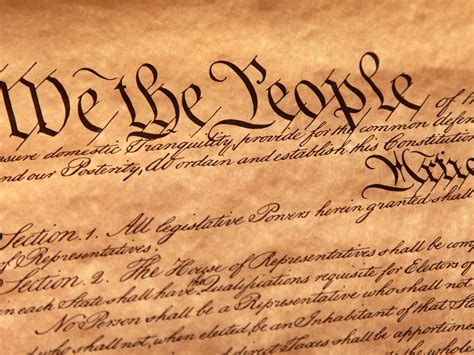 We the People of
sure domestic Tranquility, provide for the common defen
nd our Posterity, do ordain and establish this Constitution
Artic
Section. 1. All legislative Powers herein granted shall
of Representatives.
Section. 2. The House of Representatives shall be com
in each State shall have the Qualifications requisite for Electors of
No Person shall be a Representative who shall not
who shall not, when elected, be an Inhabitant of that
and direct Taxes shall be apportione